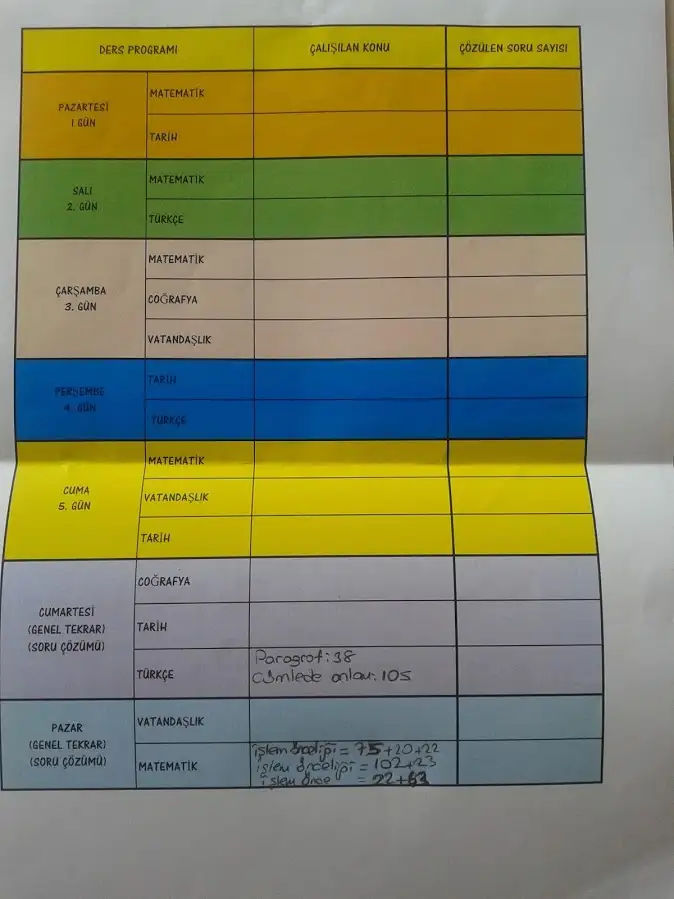 DERS PROGRAMI ÇALIŞILAN KONU ÇÖZÜLEN SORU SAYISI
PAZARTESİ
1. GÜN
MATEMATİK
TARİH
SALI
2. GÜN
MATEMATİK
TÜRKÇE
ÇARŞAMBA
3. GÜN
MATEMATİK
COĞRAFYA
VATANDAŞLIK
PERŞEMBE
4. GÜN
TARİH
TÜRKÇE
CUMA
5. GÜN
MATEMATİK
VATANDAŞLIK
TARİH
CUMARTESİ
(GENEL TEKRAR)
(SORU ÇÖZÜMÜ)
COĞRAFYA
TARİH
TÜRKÇE
Paragrof: 38
Cümlede anlam: 105
PAZAR
(GENEL TEKRAR)
(SORU ÇÖZÜMÜ)
VATANDAŞLIK
MATEMATİK
işlem önceliği = 75+20+22
işlem önceliği = 102+23
işlem önce = 22+63